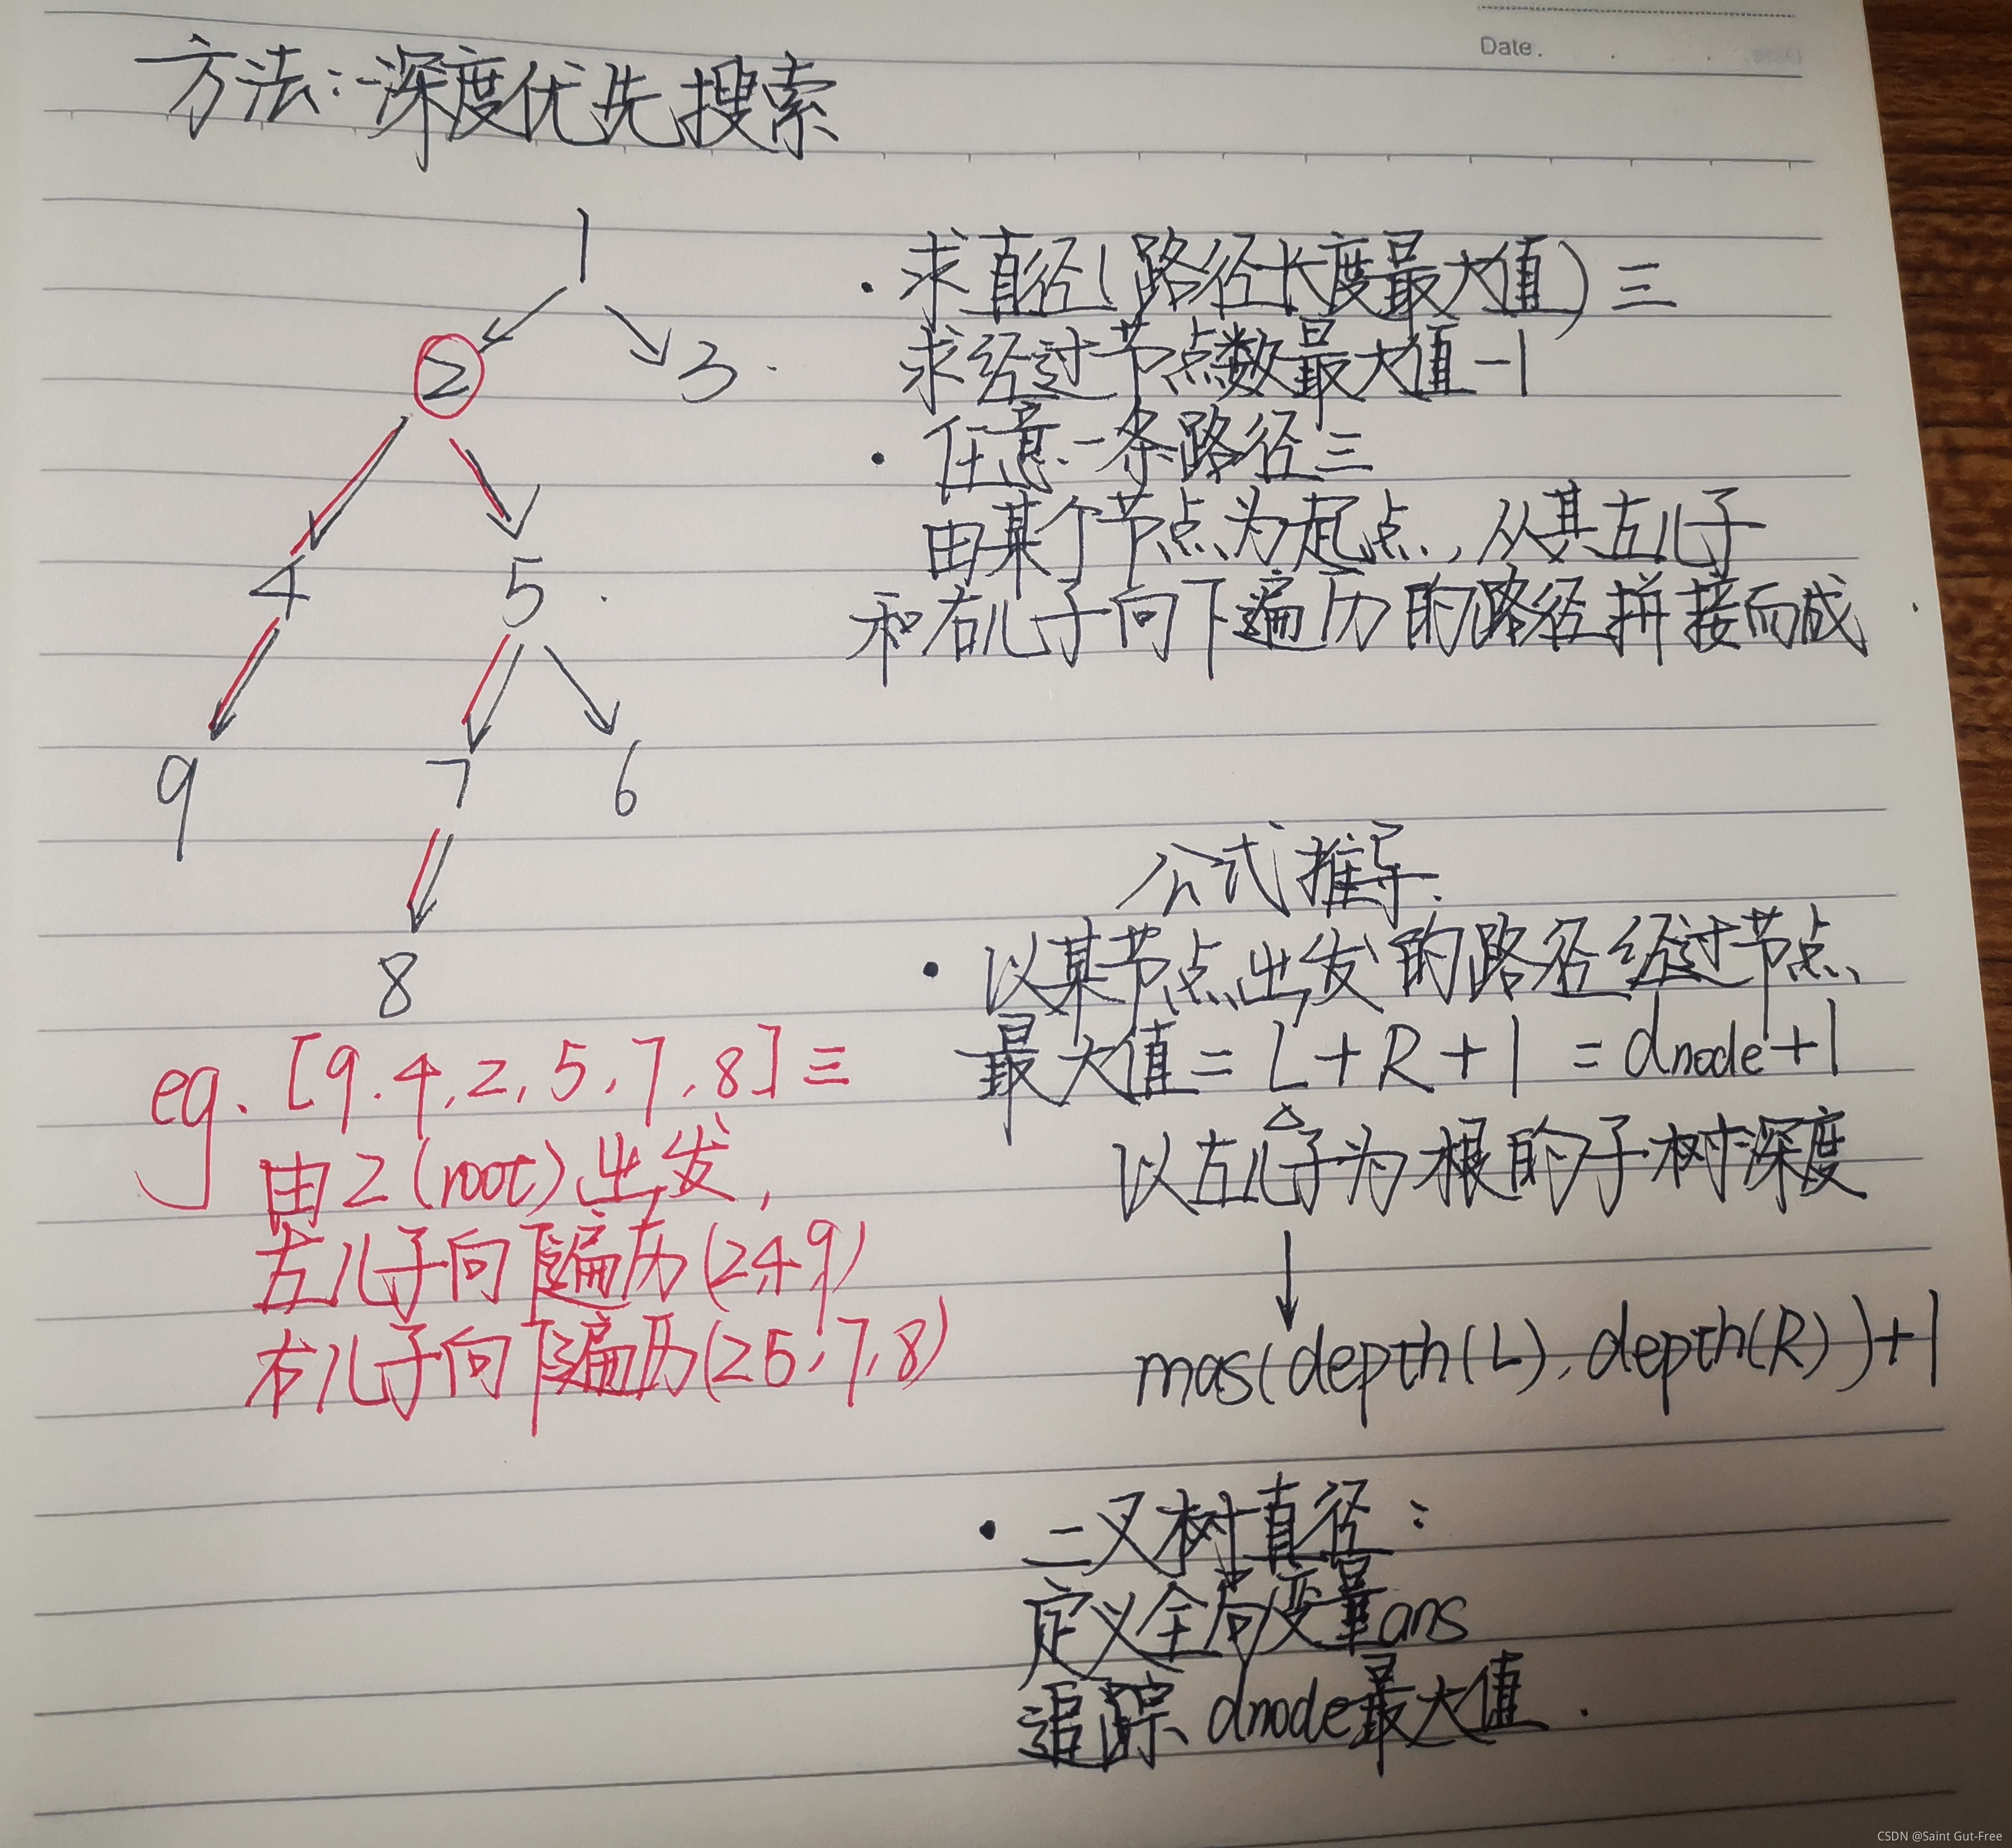 Date.
方法:深度优先搜索
1
2
3
4
5
9
7
6
8
·求直径(路径长度最大值)三
求经过节点数最大值-1
·任意一条路径三
由某个节点为起点,从其左儿子
和右儿子向下遍历的路径拼接而成
eg.[9.4,2,5,7,8]三
由2(root)出发,
左儿子向下遍历(2,4,9)
右儿子向下遍历(2,5,7,8)
公式推导.
·以某节点出发的路径经过节点
最大值=L+R+1=dnode+1
以左儿子为根的子树深度
↓
mas(depth(L),depth(R))+1
·二叉树直径:
定义全局变量ans
追踪dnode最大值.
CSDN @Saint Gut-Free